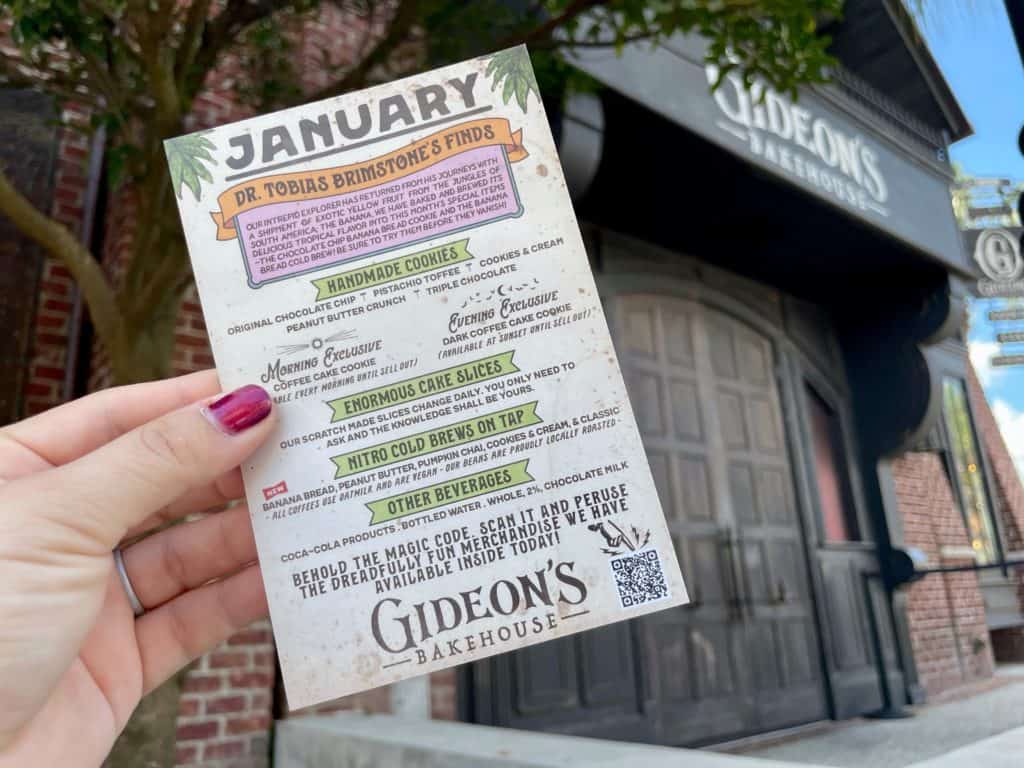 JANUARY
DR. TOBIAS BRIMSTONE'S FINDS
OUR INTREPID EXPLORER HAS RETURNED FROM HIS JOURNEYS WITH
A SHIPMENT OF EXOTIC YELLOW FRUIT FROM THE JUNGLES OF
SOUTH AMERICA; THE BANANA. WE HAVE BAKED AND BREWED ITS
DELICIOUS TROPICAL FLAVOR INTO THIS MONTH'S SPECIAL ITEMS
~THE CHOCOLATE CHIP BANANA BREAD COOKIE AND THE BANANA
BREAD COLD BREW! BE SURE TO TRY THEM BEFORE THEY VANISH!
HANDMADE COOKIES
ORIGINAL CHOCOLATE CHIP PISTACHIO TOFFEE COOKIES & CREAM
PEANUT BUTTER CRUNCH TRIPLE CHOCOLATE
MORNING EXCLUSIVE
COFFEE CAKE COOKIE
ABLE EVERY MORNING UNTIL SELL OUT)
EVENING EXCLUSIVE
DARK COFFEE CAKE COOKIE
(AVAILABLE AT SUNSET UNTIL SELL OUT)
ENORMOUS CAKE SLICES
OUR SCRATCH MADE SLICES CHANGE DAILY. YOU ONLY NEED TO
ASK AND THE KNOWLEDGE SHALL BE YOURS.
NITRO COLD BREWS ON TAP
NEW
BANANA BREAD, PEANUT BUTTER, PUMPKIN CHAI, COOKIES & CREAM, & CLASSIC
- ALL COFFEES USE OATMILK AND ARE VEGAN - OUR BEANS ARE PROUDLY LOCALLY ROASTED -
OTHER BEVERAGES
COCA-COLA PRODUCTS . BOTTLED WATER . WHOLE, 2%, CHOCOLATE MILK
BEHOLD THE MAGIC CODE. SCAN IT AND PERUSE
THE DREADFULLY FUN MERCHANDISE WE HAVE
AVAILABLE INSIDE TODAY!
GIDEON'S
BAKEHOUSE
GIDEON'S
BAKEHOUSE